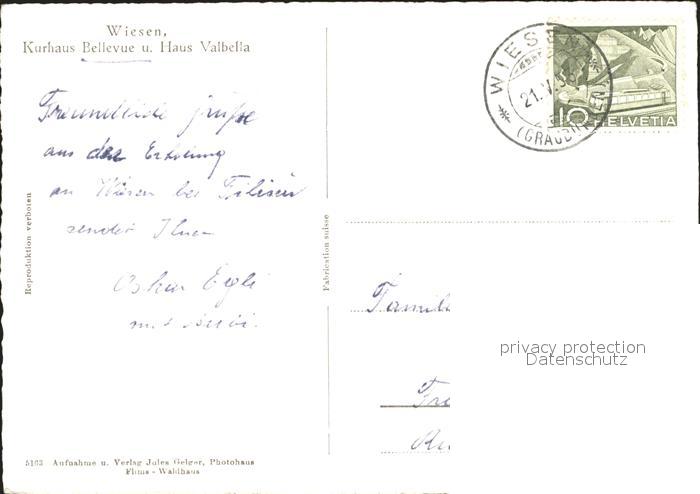 Wiesen,
Kurhaus Bellevue u. Haus Valbella
Freundliche Grüße
aus der Erholung
in Wiesen bei Filisur
sendet Ihnen
Oskar Egli
Reproduktion verboten
Fabrication suisse
WIESEN
21.V.53
(GRAUBÜNDEN)
10 HELVETIA
Famil
privacy protection
Datenschutz
Fre
5163 Aufnahme u. Verlag Jules Geiger, Photohaus
Flims - Waldhaus